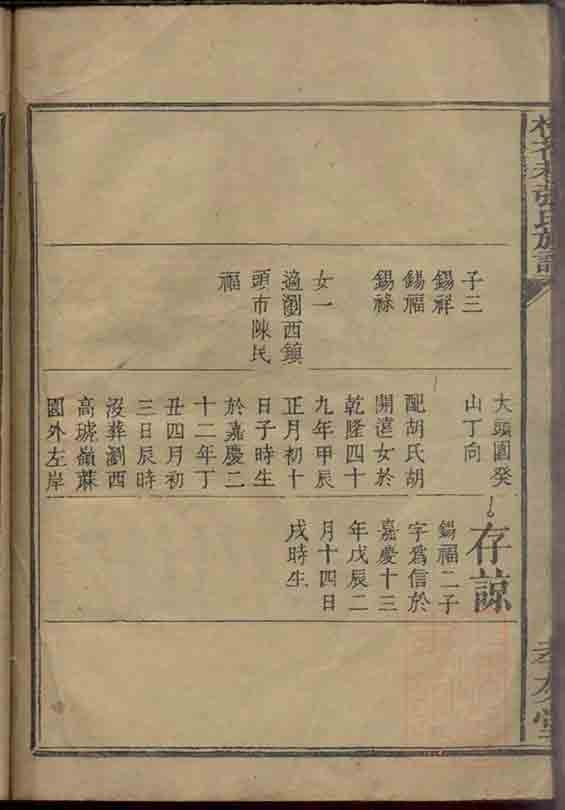 張氏族譜
孝友堂
子三
錫祥
錫福
錫祿
女一
適瀏西鎮
頭市陳民
福
大頭園癸
山丁向
配胡氏胡
開遠女於
乾隆四十
九年甲辰
正月初十
日子時生
於嘉慶二
十二年丁
丑四月初
三日辰時
沒葬瀏西
高琥嶺蔴
園外左岸
存諒
錫福二子
字爲信於
嘉慶十三
年戊辰二
月十四日
戌時生